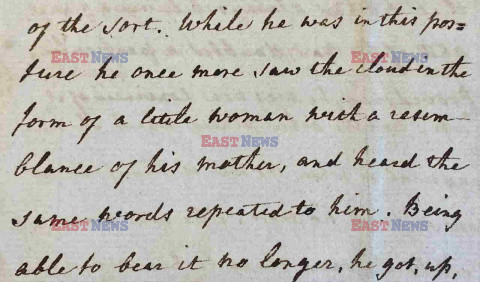 of the sort. While he was in this pos=
ture he once more saw the cloud in the
form of a little woman with a resem-
blance of his mother, and heard the
same words repeated to him. Being
able to bear it no longer, he got up,
EAST NEWS
EAST NEWS
EAST NEWS
EAST NEWS
EAST NEWS
EAST NEWS